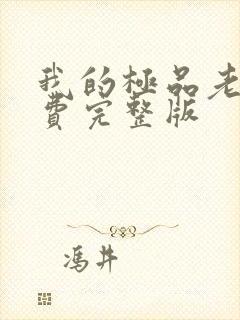 我的極品老
費完整版
馮井